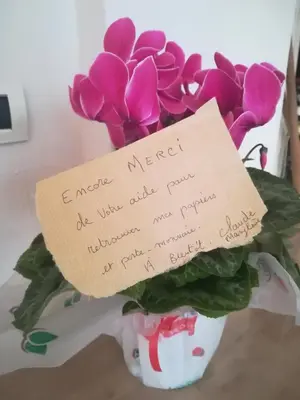 Encore MERCI
de votre aide pour
retrouver mes papiers
et porte-monnaie.
A Bientôt. Claude